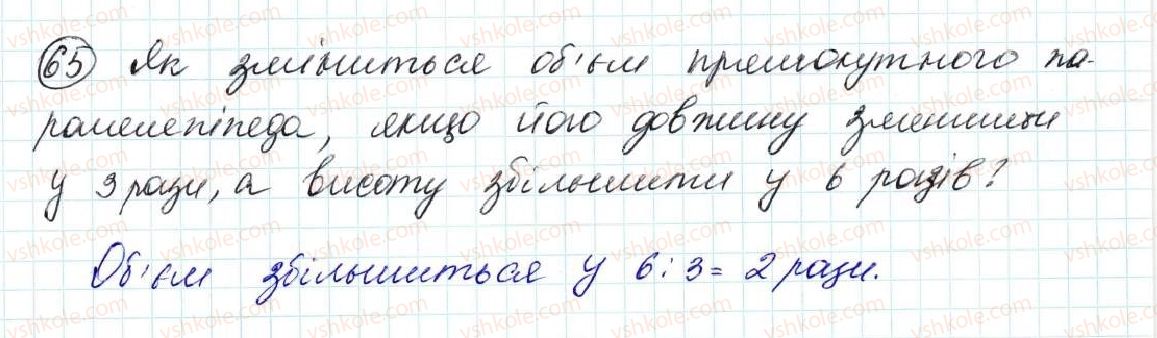 65 Як зміниться об'єм прямокутного па-
ралелепіпеда, якщо його довжину зменшити
у 3 рази, а висоту збільшити у 6 разів?
Об'єм збільшиться у 6 : 3 = 2 рази.